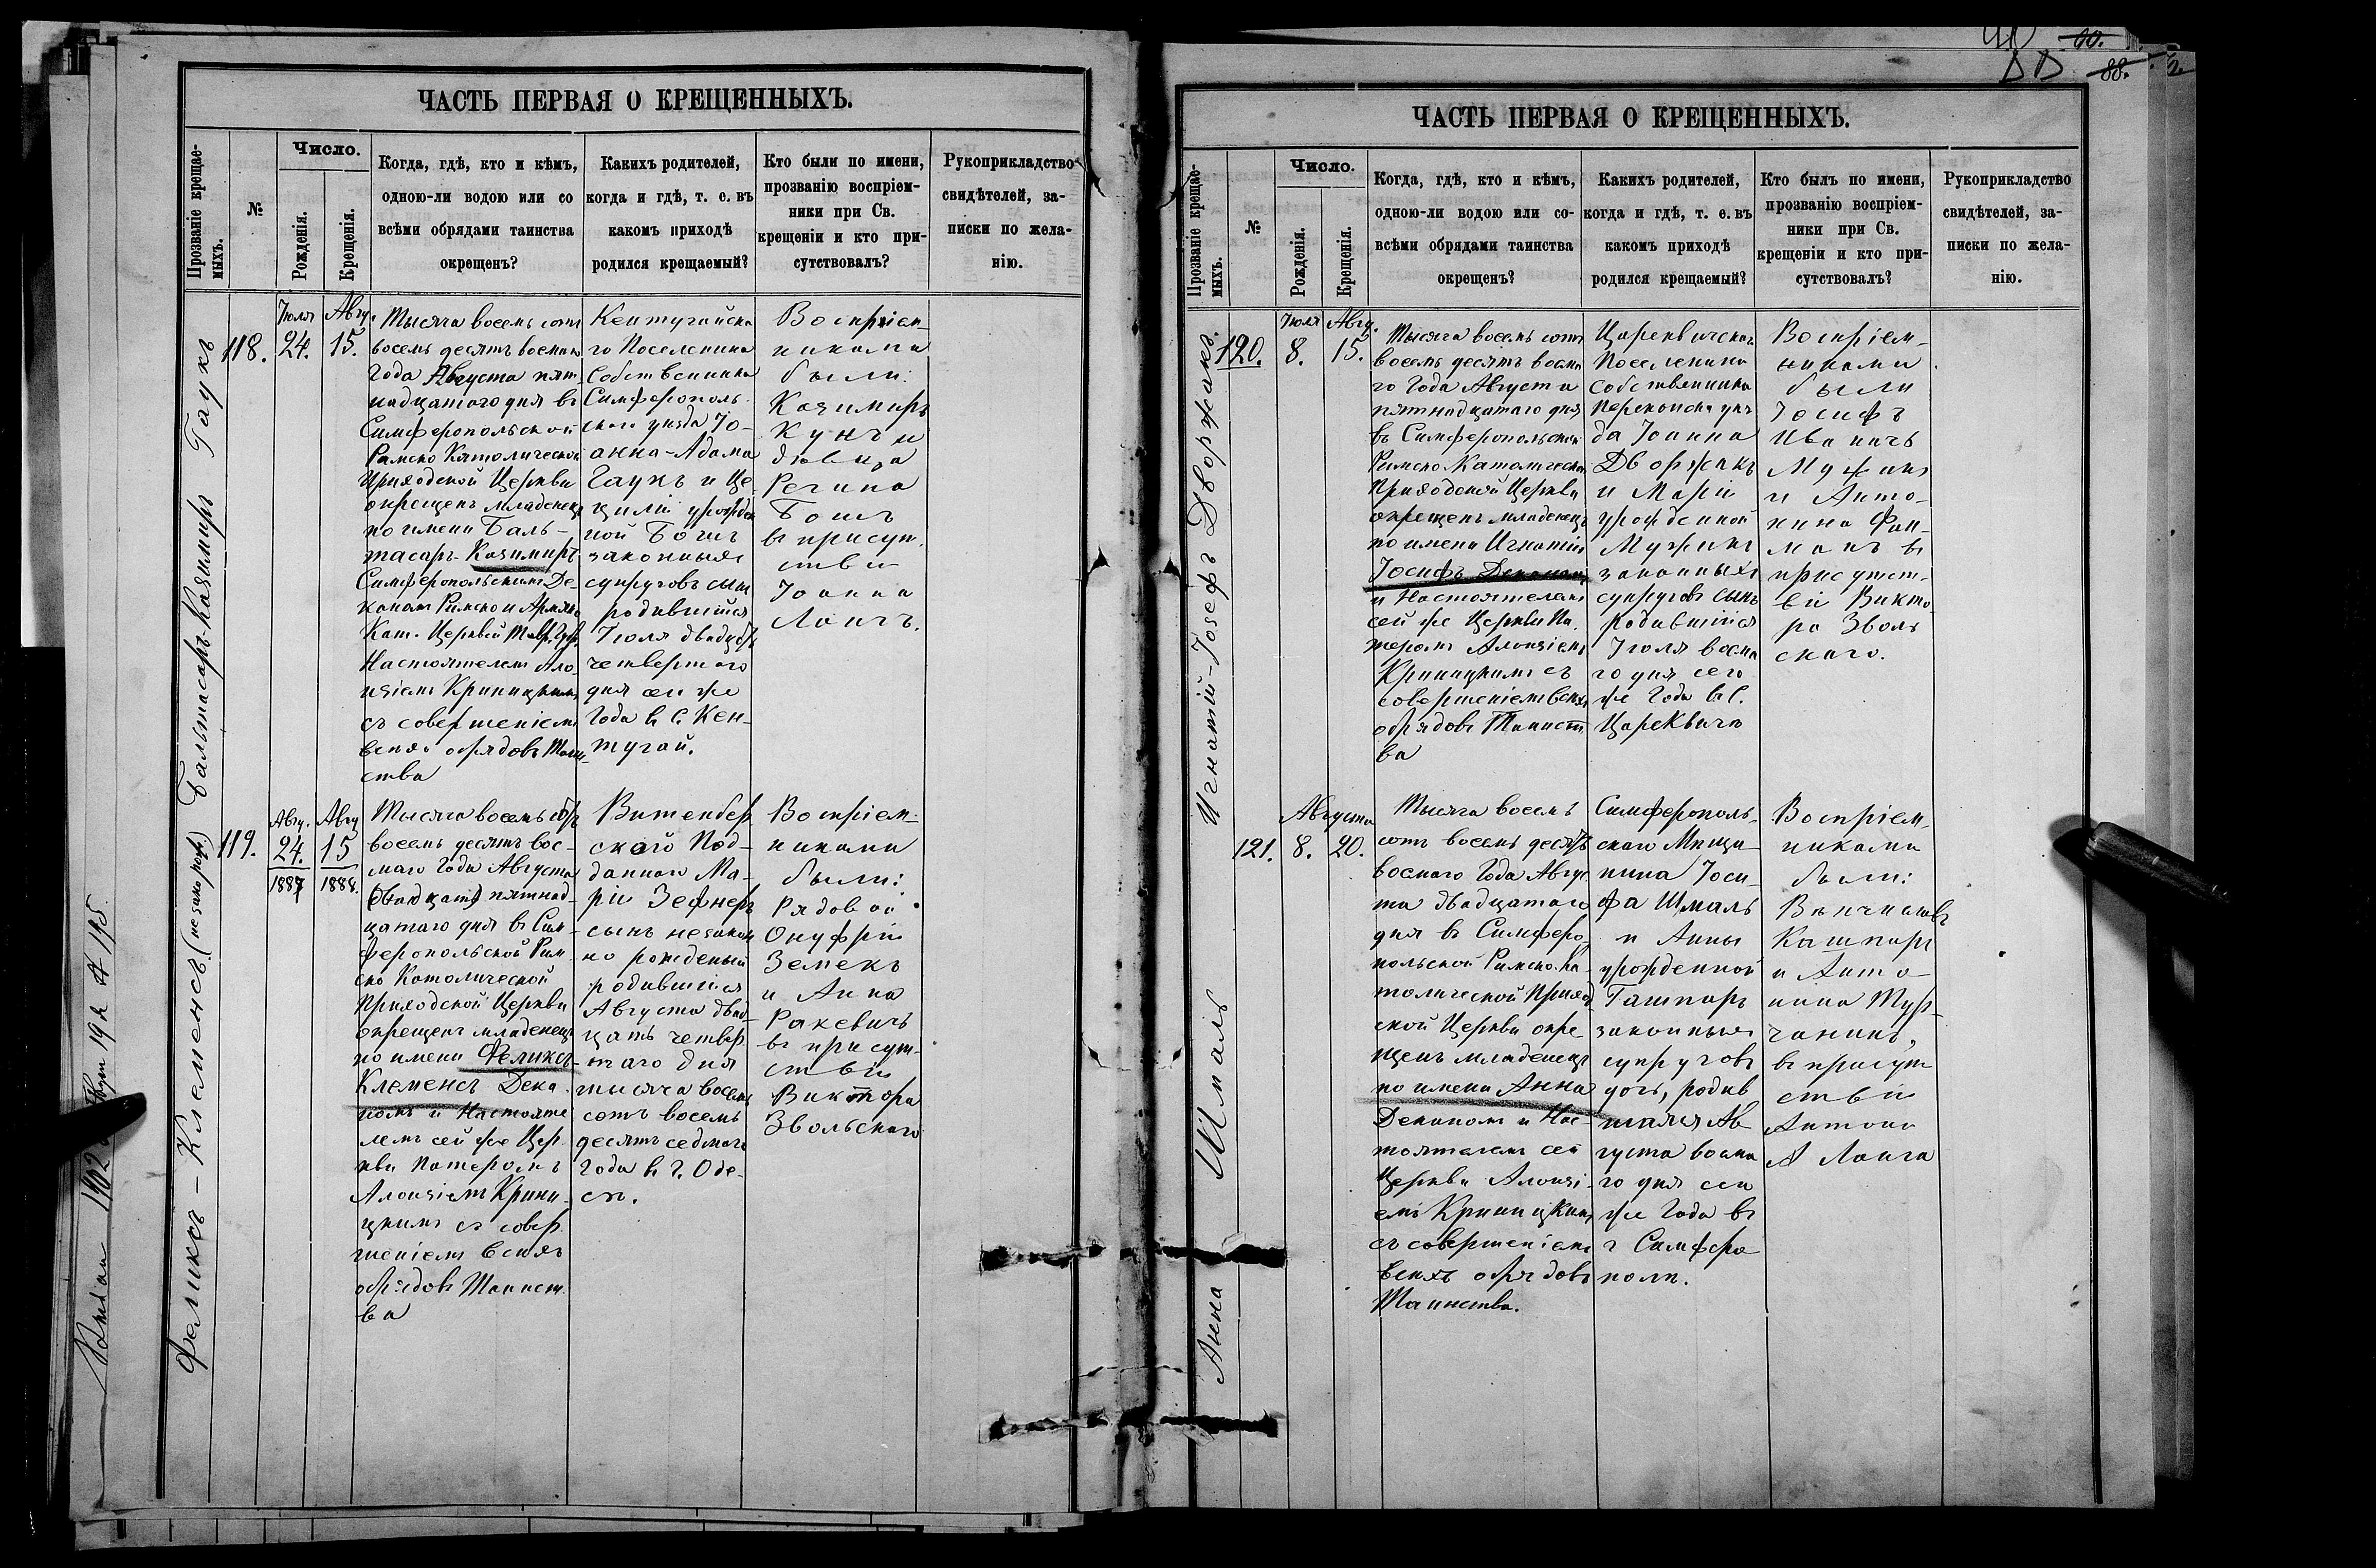 ЧАСТЬ ПЕРВАЯ О КРЕЩЕННЫХЪ.
Прозваніе крещае-
мыхъ.
№
Число.
Рожденія.
Крещенія.
Когда, гдѣ, кто и кѣмъ,
одною-ли водою или со
всѣми обрядами таинства
окрещенъ?
Какихъ родителей,
когда и гдѣ, т. е. въ
какомъ приходѣ
родился крещаемый?
Кто были по имени,
прозванію воспріем-
ники при Св.
крещеніи и кто при-
сутствовалъ?
Рукоприкладство
свидѣтелей, за-
писки по жела-
нію.
Бальтасаръ-Казимиръ Гаукъ
118.
Іюля
24.
Авгу.
15.
Тысяча восемь сотъ
восемь десятъ восмаго
года Августа пят-
надцатаго дня въ
Симферопольской
Римско Католической
Приходской Церкви
окрещенъ младенецъ
по имени Баль-
тасаръ-Казимиръ
Симферопольскимъ Де-
каномъ Римско и Армяно
Кат. Церквей
Настоятелемъ Ало
изіемъ Криницкимъ
съ совершеніемъ
всѣхъ обрядовъ Таин-
ства
Кентугайска
го Поселенина
Собственника
Симферополь-
скаго уѣзда Іо-
анна-Адама
Гаукъ и Це
циліи урожден
ной Бошъ
законныхъ
супруговъ сынъ
родившійся
Іюля двадцать
четвертаго
дня сего же
Года въ с. Кен-
тугай.
Воспріем-
никами
были:
Казимиръ
Кунъ и
дѣвица
Регина
Бошъ
въ присут-
ствіи
Іоанна
Лангъ.
Феликсъ - Клеменсъ. (незак. рож.)
119.
Авгу.
24.
1887
Авгу
15
1888.
Тысяча восемь сотъ
восемь десятъ вос-
маго Года Августа
двадцать пятнад-
цатаго дня въ Сим-
феропольской Рим-
ско Католической
Приходской Церкви
окрещенъ младенецъ
по имени Феликсъ-
Клеменсъ Дека-
номъ и Настояте
лемъ сей же Цер-
кви Патеромъ
Алоизіемъ Крини-
цкимъ съ совер-
шеніемъ всѣхъ
обрядовъ Таинст-
ва
Витенбер
скаго Под-
данного Ма-
ріи Зефнеръ
сынъ незакон
но рожденый
родившійся
Августа двад-
цать четвер-
таго дня
тысяча восемь
сотъ восемь
десятъ седмаго
Года въ г. Оде-
сѣ.
Воспріем-
никами
были:
Рядовой
Онуфрій
Земекъ
и Анна
Ракевичъ
въ присут-
ствіи
Виктора
Звольскаго
ЧАСТЬ ПЕРВАЯ О КРЕЩЕННЫХЪ.
Прозваніе крещае-
мыхъ.
№
Число.
Рожденія.
Крещенія.
Когда, гдѣ, кто и кѣмъ,
одною-ли водою или со-
всѣми обрядами таинства
окрещенъ?
Какихъ родителей,
когда и гдѣ, т. е. въ
какомъ приходѣ
родился крещаемый?
Кто былъ по имени,
прозванію воспріем-
ники при Св.
крещеніи и кто при-
сутствовалъ?
Рукоприкладство
свидѣтелей, за-
писки по жела-
нію.
88.
Игнатій-Іосефъ Дворжакъ.
120.
Іюля
8.
Авгу.
15.
Тысяча восемь сотъ
восемь десятъ восма
го Года Августа
пятнадцатаго дня
въ Симферопольской
Римско Католической
Приходской Церкви
окрещенъ младенецъ
по имени Игнатій
Іосифъ Деканомъ
и Настоятелемъ
сей же Церкви Па-
теромъ Алоизіемъ
Криницкимъ съ
совершеніемъ всѣхъ
обрядовъ Таинст
ва
Цареквичскаго
Поселенина
собственника
Перекопска уѣз
да Іоанна
Дворжакъ
и Маріи
урожденной
Мужикъ
законныхъ
супруговъ сынъ
родившійся
Іюля восма
го дня сего
же Года въ С.
Цареквичъ
Воспріем-
никами
были
Іосифъ
Ивановъ
Мужикъ
и Анто-
нина Фан-
манъ въ
присутст-
віи Викто
ра Зволь
скаго.
Анна Шмаль
121.
Августа
8. 20.
Тысяча восемь
сотъ восемь десятъ
восмаго Года Авгус-
та двадцатаго
дня въ Симферо-
польской Римско.Ка-
толической Приход
ской Церкви окре-
щенъ младенецъ
по имени Анна
Деканомъ и Нас-
тоятелемъ сей
Церкви Алоизі-
емъ Криницкимъ
съ совершеніемъ
всѣхъ обрядовъ
Таинства.
Симферополь-
скаго Мѣща-
нина Іоси-
фа Шмаль
и Анны
урожденной
Гашпаръ
законныхъ
супруговъ
дочь, родив
шаяся Ав-
густа восма
го дня сего
же Года въ
г Симферо
полѣ.
Воспріем-
никами
были:
Вѣнчиславъ
Кашпаръ
и Анто-
нина Тур-
чанинъ,
въ присут
ствіи
Антона
Ланга